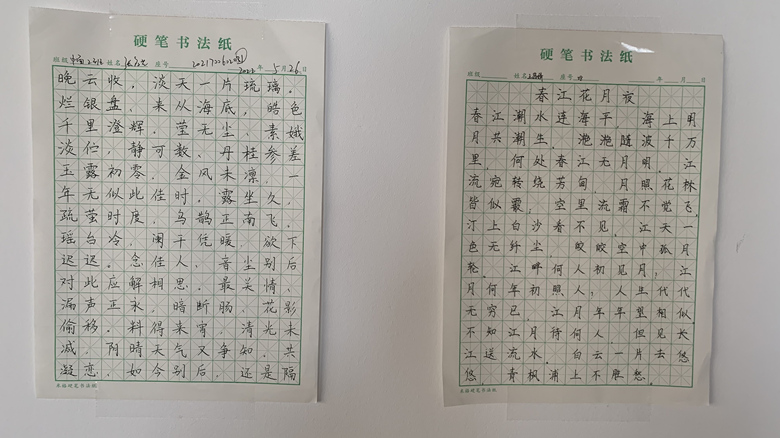 硬笔书法纸
班级 姓名 座号 2022年5月26日
晚云收，淡天一片琉璃。
烂银盘、来从海底，皓色
千里澄辉。莹无尘、素娥
淡伫，静可数、丹桂参差
玉露初零，金风未凛，一
年无似此佳时。露坐久，
疏萤时度，乌鹊正南飞。
瑶台冷，阑干凭暖，欲下
迟迟。念佳人、音尘别后
对此应解相思。最关情、
漏声正永，暗断肠、花影
偷移。料得来宵，清光未
减，阴晴天气又争知。共
凝恋、如今别后，还是隔
硬笔书法纸
班级 姓名 座号 年 月 日
春江花月夜
春江潮水连海平，海上明
月共潮生。滟滟随波千万
里，何处春江无月明。江
流宛转绕芳甸，月照花林
皆似霰。空里流霜不觉飞，
汀上白沙看不见。江天一
色无纤尘，皎皎空中孤月
轮。江畔何人初见月，江
月何年初照人？人生代代
无穷已，江月年年望相似
不知江月待何人，但见长
江送流水。白云一片去悠
悠，青枫浦上不胜愁。